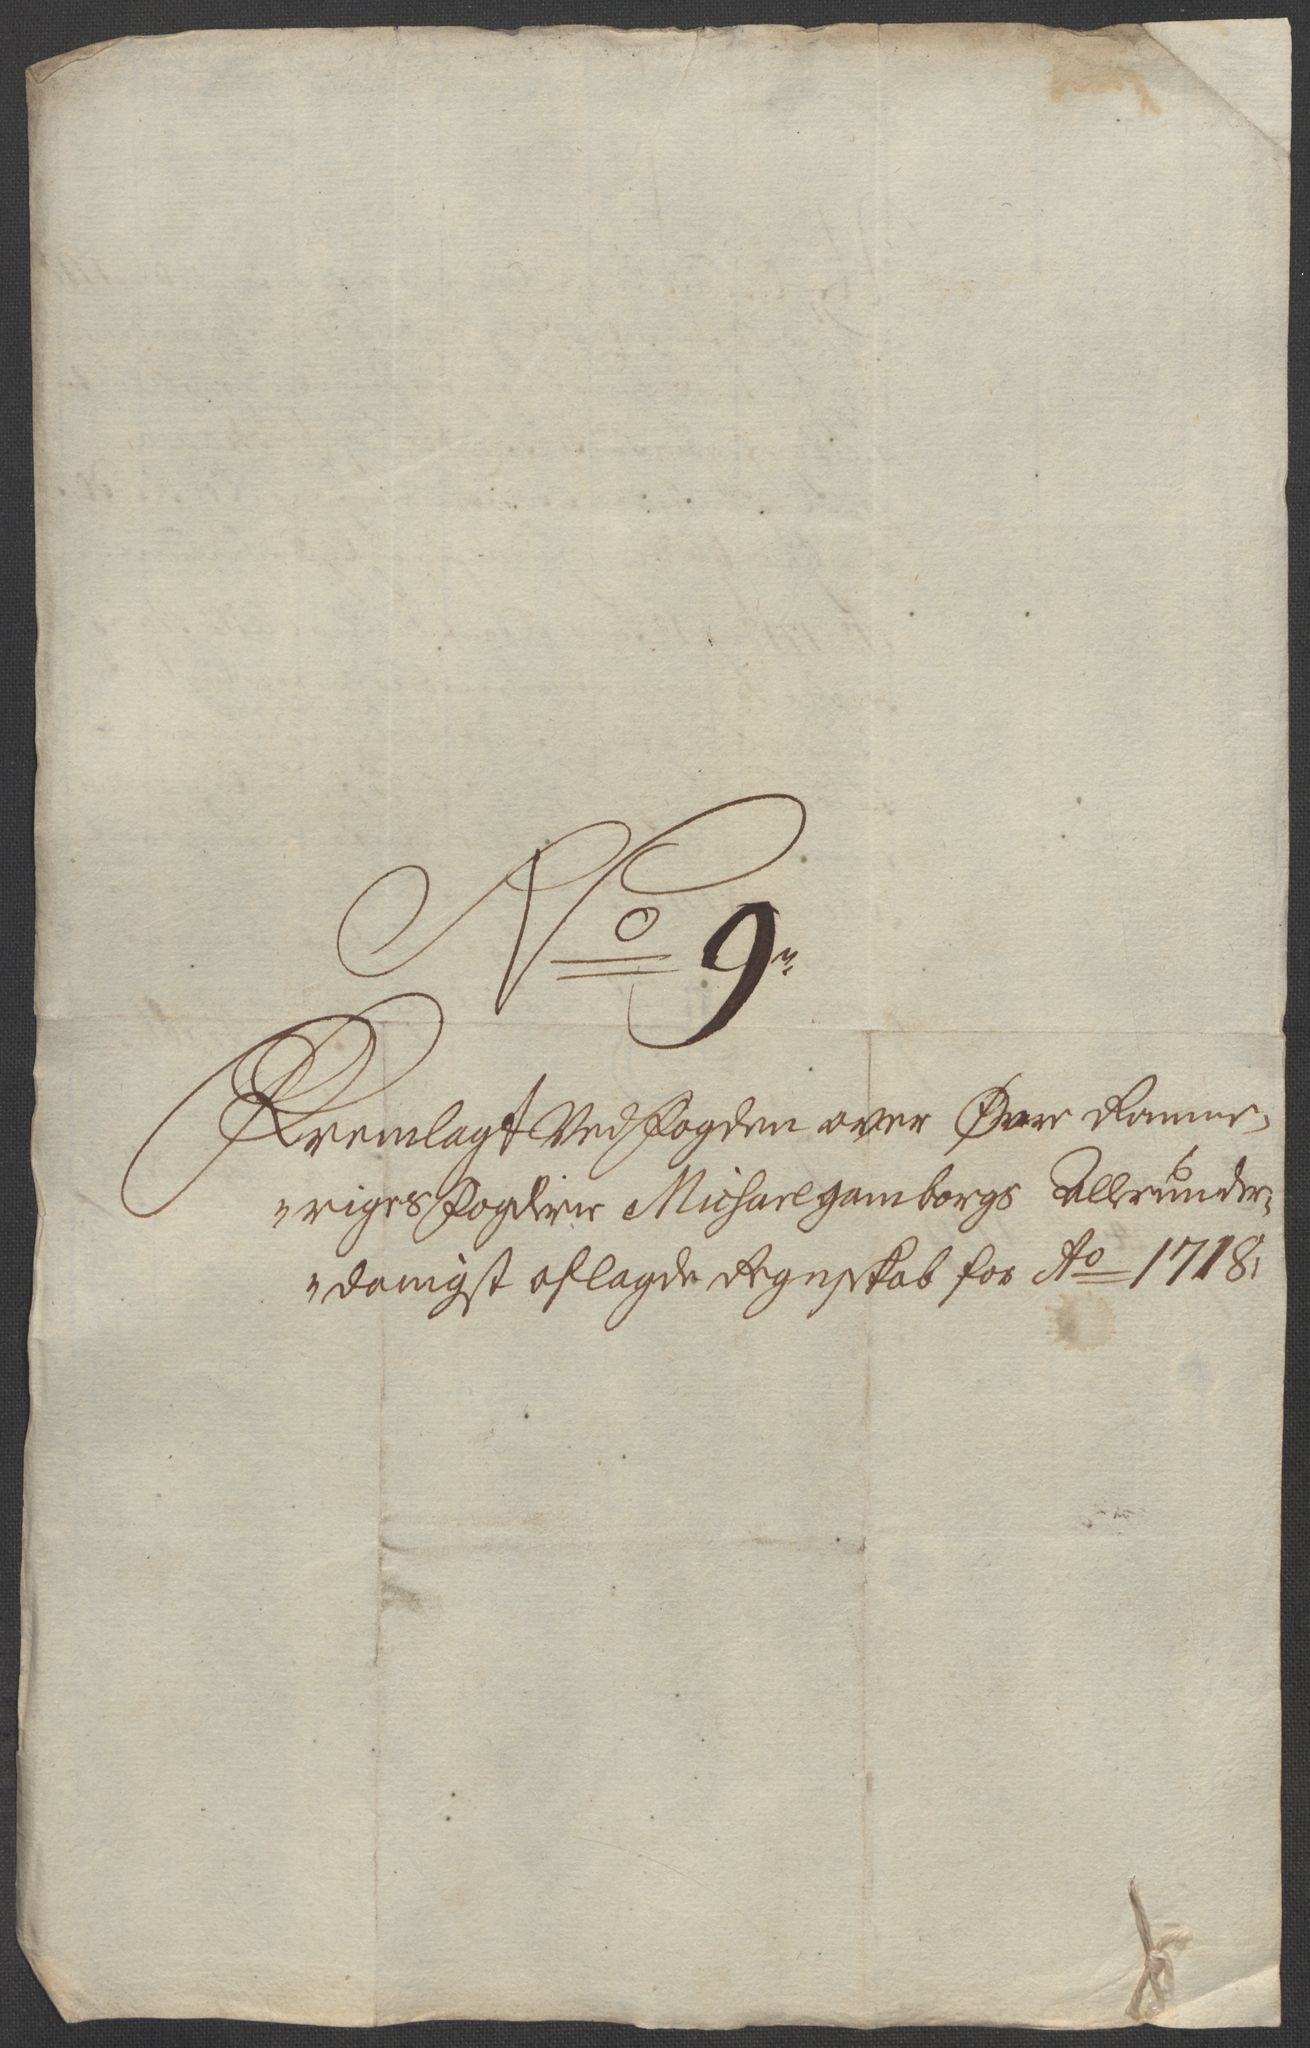 No 9
Fremlagt Ved Fogden over Øvre Rome-
riges Fogderie Michael Gamborgs Allerunder-
danigst aflagde Regnskab for Ao 1718